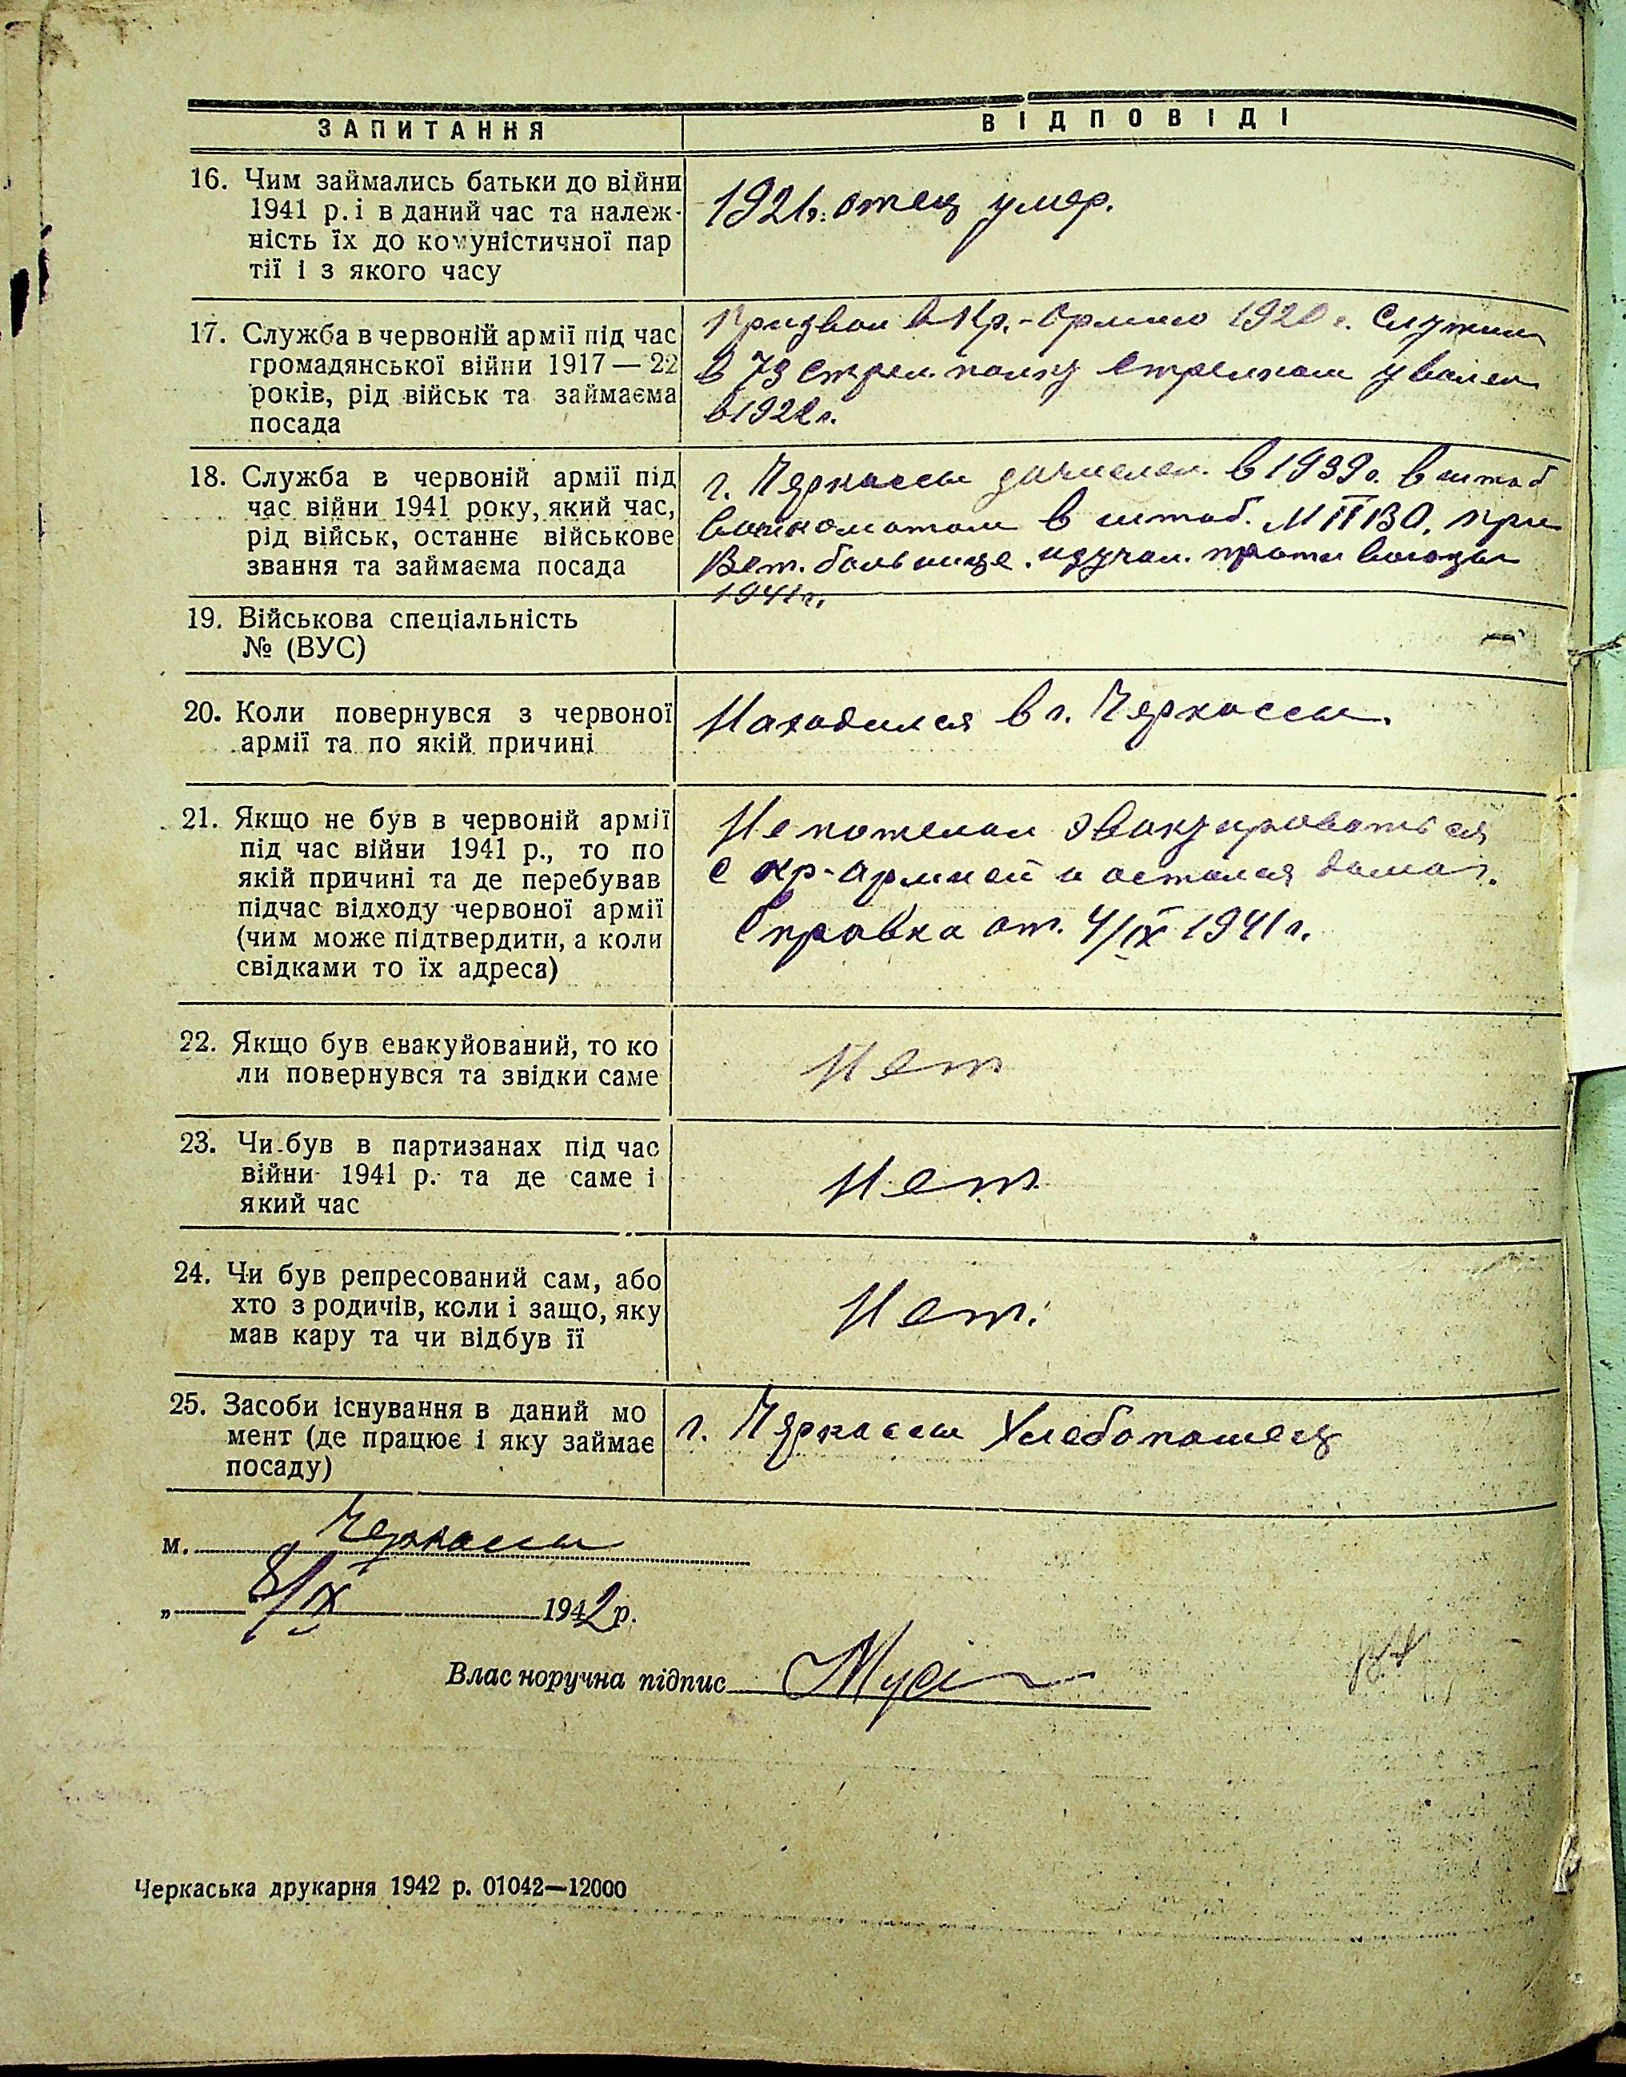 ЗАПИТАННЯ
ВІДПОВІДІ
16. Чим займались батьки до війни
1941 р. і в даний час та належ-
ність їх до комуністичної пар
тії і з якого часу
1921г. отец умер.
17. Служба в червоній армії під час
громадянської війни 1917—22
років, рід військ та займаєма
посада
Призван в Кр.-Армию 1920 г. Служил
в 73 стрел. полку стрелком уволен
в 1922 г.
18. Служба в червоній армії під
час війни 1941 року, який час,
рід військ, останнє військове
звання та займаєма посада
г. Черкассы зачислен в 1939 г. в штаб
военкоматом в штаб. МПВО, при
Вет. больнице. изучал. противогазы
1941 г.
19. Військова спеціальність
№ (ВУС)
—
20. Коли повернувся з червоної
армії та по якій причині
Находился в г. Черкассы.
21. Якщо не був в червоній армії
під час війни 1941 р., то по
якій причині та де перебував
підчас відходу червоної армії
(чим може підтвердити, а коли
свідками то їх адреса)
Не пожелал эвакуироваться
с кр-армией и остался дома.
Справка от. 4/IX 1941 г.
22. Якщо був евакуйований, то ко
ли повернувся та звідки саме
Нет
23. Чи був в партизанах під час
війни 1941 р. та де саме і
який час
Нет.
24. Чи був репресований сам, або
хто з родичів, коли і защо, яку
мав кару та чи відбув її
Нет.
25. Засоби існування в даний мо
мент (де працює і яку займає
посаду)
г. Черкассы Хлебопашец
м. Черкассы
„ 8/IX 1942 р.
Власноручна підпис
Черкаська друкарня 1942 р. 01042—12000